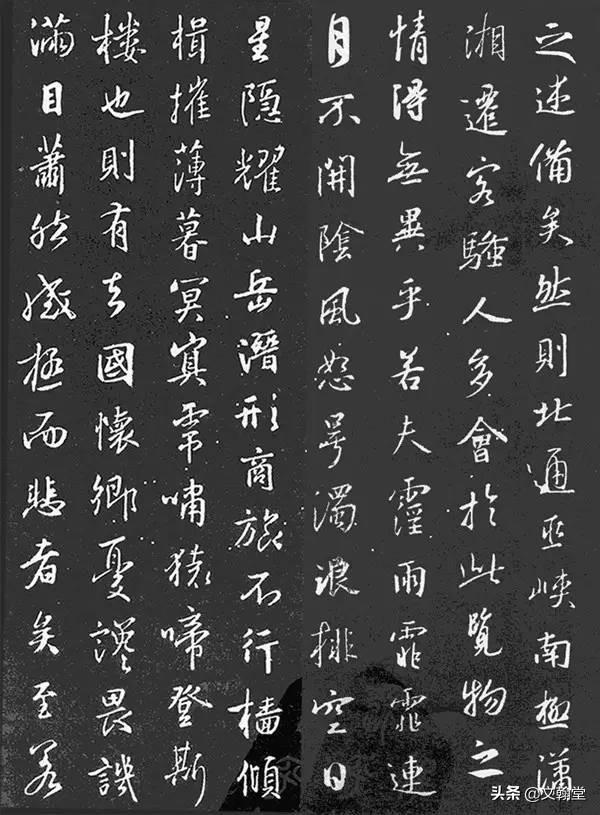 之述備矣然則北通巫峽南極瀟
湘遷客騷人多會於此覽物之
情得無異乎若夫霪雨霏霏連
月不開陰風怒号濁浪排空日
星隱耀山岳潛形商旅不行檣傾
楫摧薄暮冥冥虎嘯猿啼登斯
樓也則有去國懷鄉憂讒畏譏
滿目蕭然感極而悲者矣至若
头条 @文翰堂